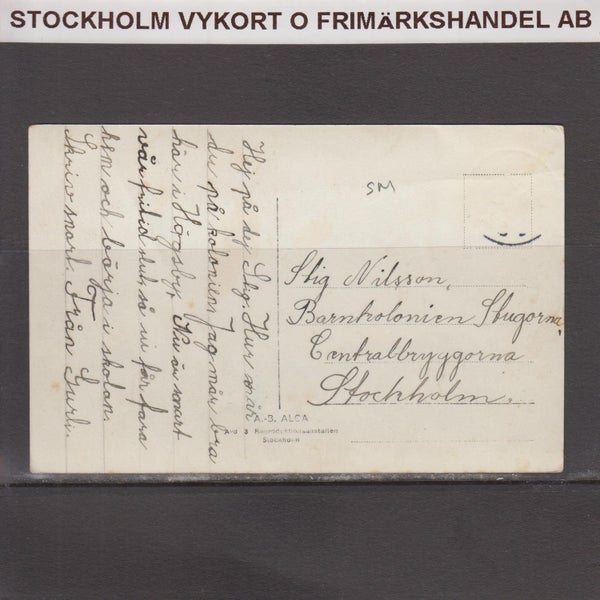 STOCKHOLM VYKORT O FRIMÄRKSHANDEL AB
Hej på dej Stig. Hur mår
du på kolonien Jag mår bra
här i Högsby. Nu är snart
vår fritid slut så vi får fara
hem och börja i skolan.
Skriv snart. Från Gurli.
SM
Stig Nilsson,
Barnkolonien Stugorna,
Centralbryggorna
Stockholm.
A.-B. ALGA
Reproduktionsanstalten
Stockholm